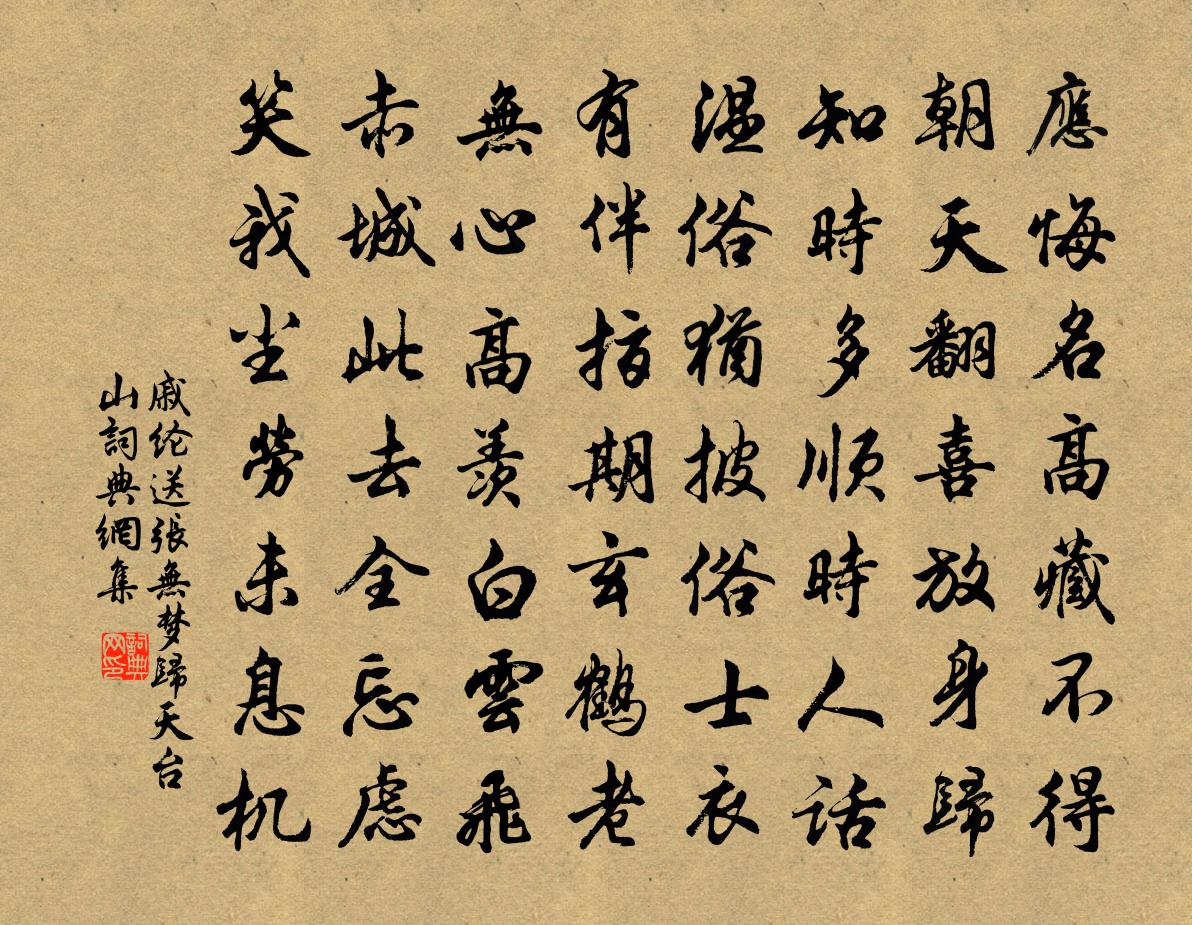 應悔名高藏不得
朝天翻喜放身歸
知時多順時人話
温俗猶披俗士衣
有伴指期玄鹤老
無心高羨白雲飛
赤城此去全忘慮
笑我尘劳未息机
戚纶送張無梦歸天台
山詞典網集
詞典
网印